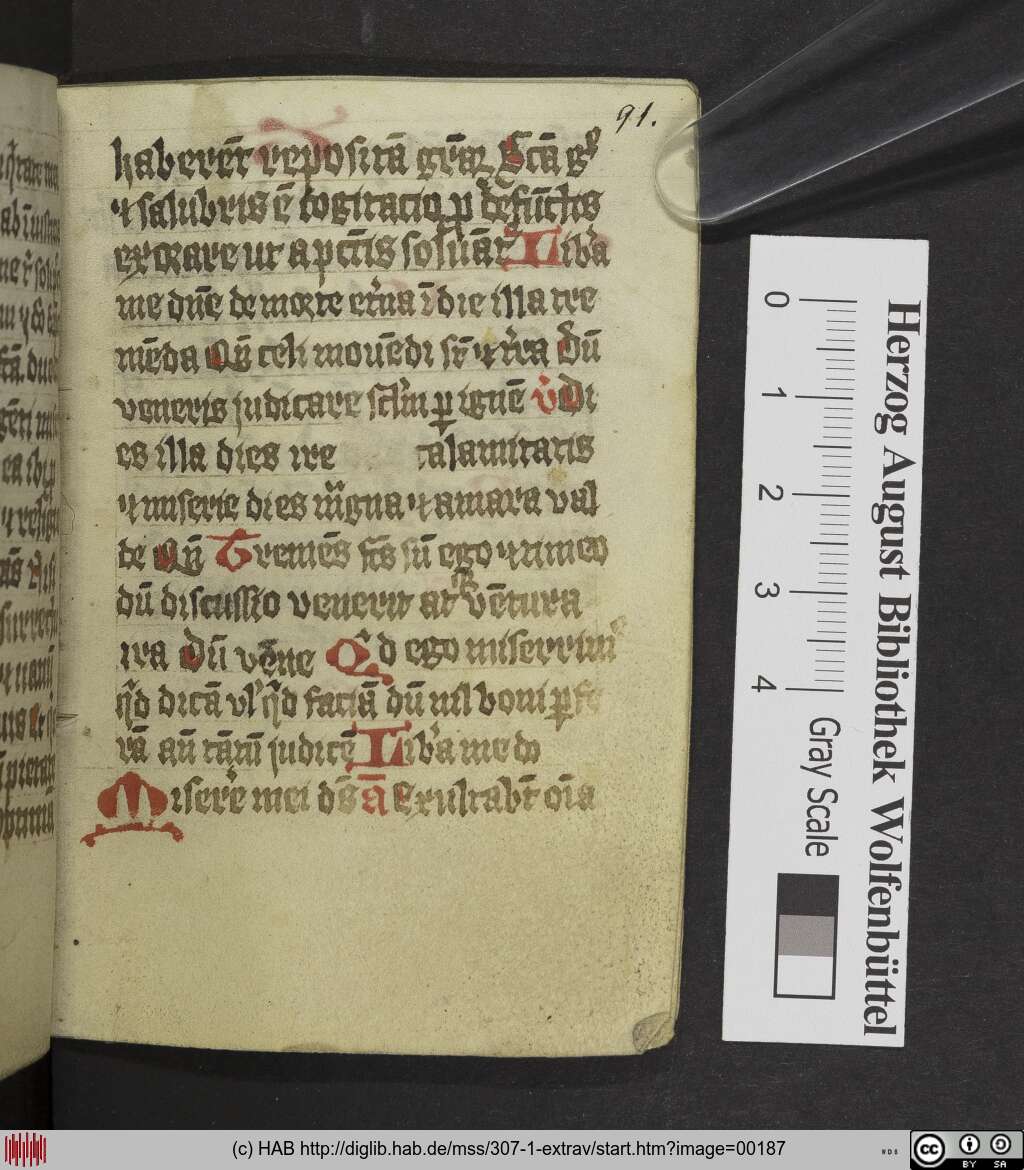 91.
haberēt repositā grām Sctā gͦ
⁊ salubris ē cogitacio ꝓ defūctis
exorare ut a pctīs soluāt᷑ Lib'a
me dn̄e de morte et'na ī die illa tre
mēda Qn̄ celi mouēdi st̄ ⁊ t'ra Dū
veneris judicare sclm̄ ꝑ ignē V' Di
es illa dies ire calamitatis
⁊ miserie dies magna ⁊ amara val
de Qn̄ Tremēs fc̄s sū ego ⁊ timeo
dū discussio venerit atqꝫ vētura
ira Dū vēne Qͥd ego miserrimꝰ
qͥd dicā vl' qͥd faciā dū nil boni ꝑfe
rā an̄ tātū judicē Lib'a me do
Miser'e mei d's ā Exultabt̄ oīa
Herzog August Bibliothek Wolfenbüttel
0 1 2 3 4
Gray Scale
(c) HAB http://diglib.hab.de/mss/307-1-extrav/start.htm?image=00187
cc BY SA